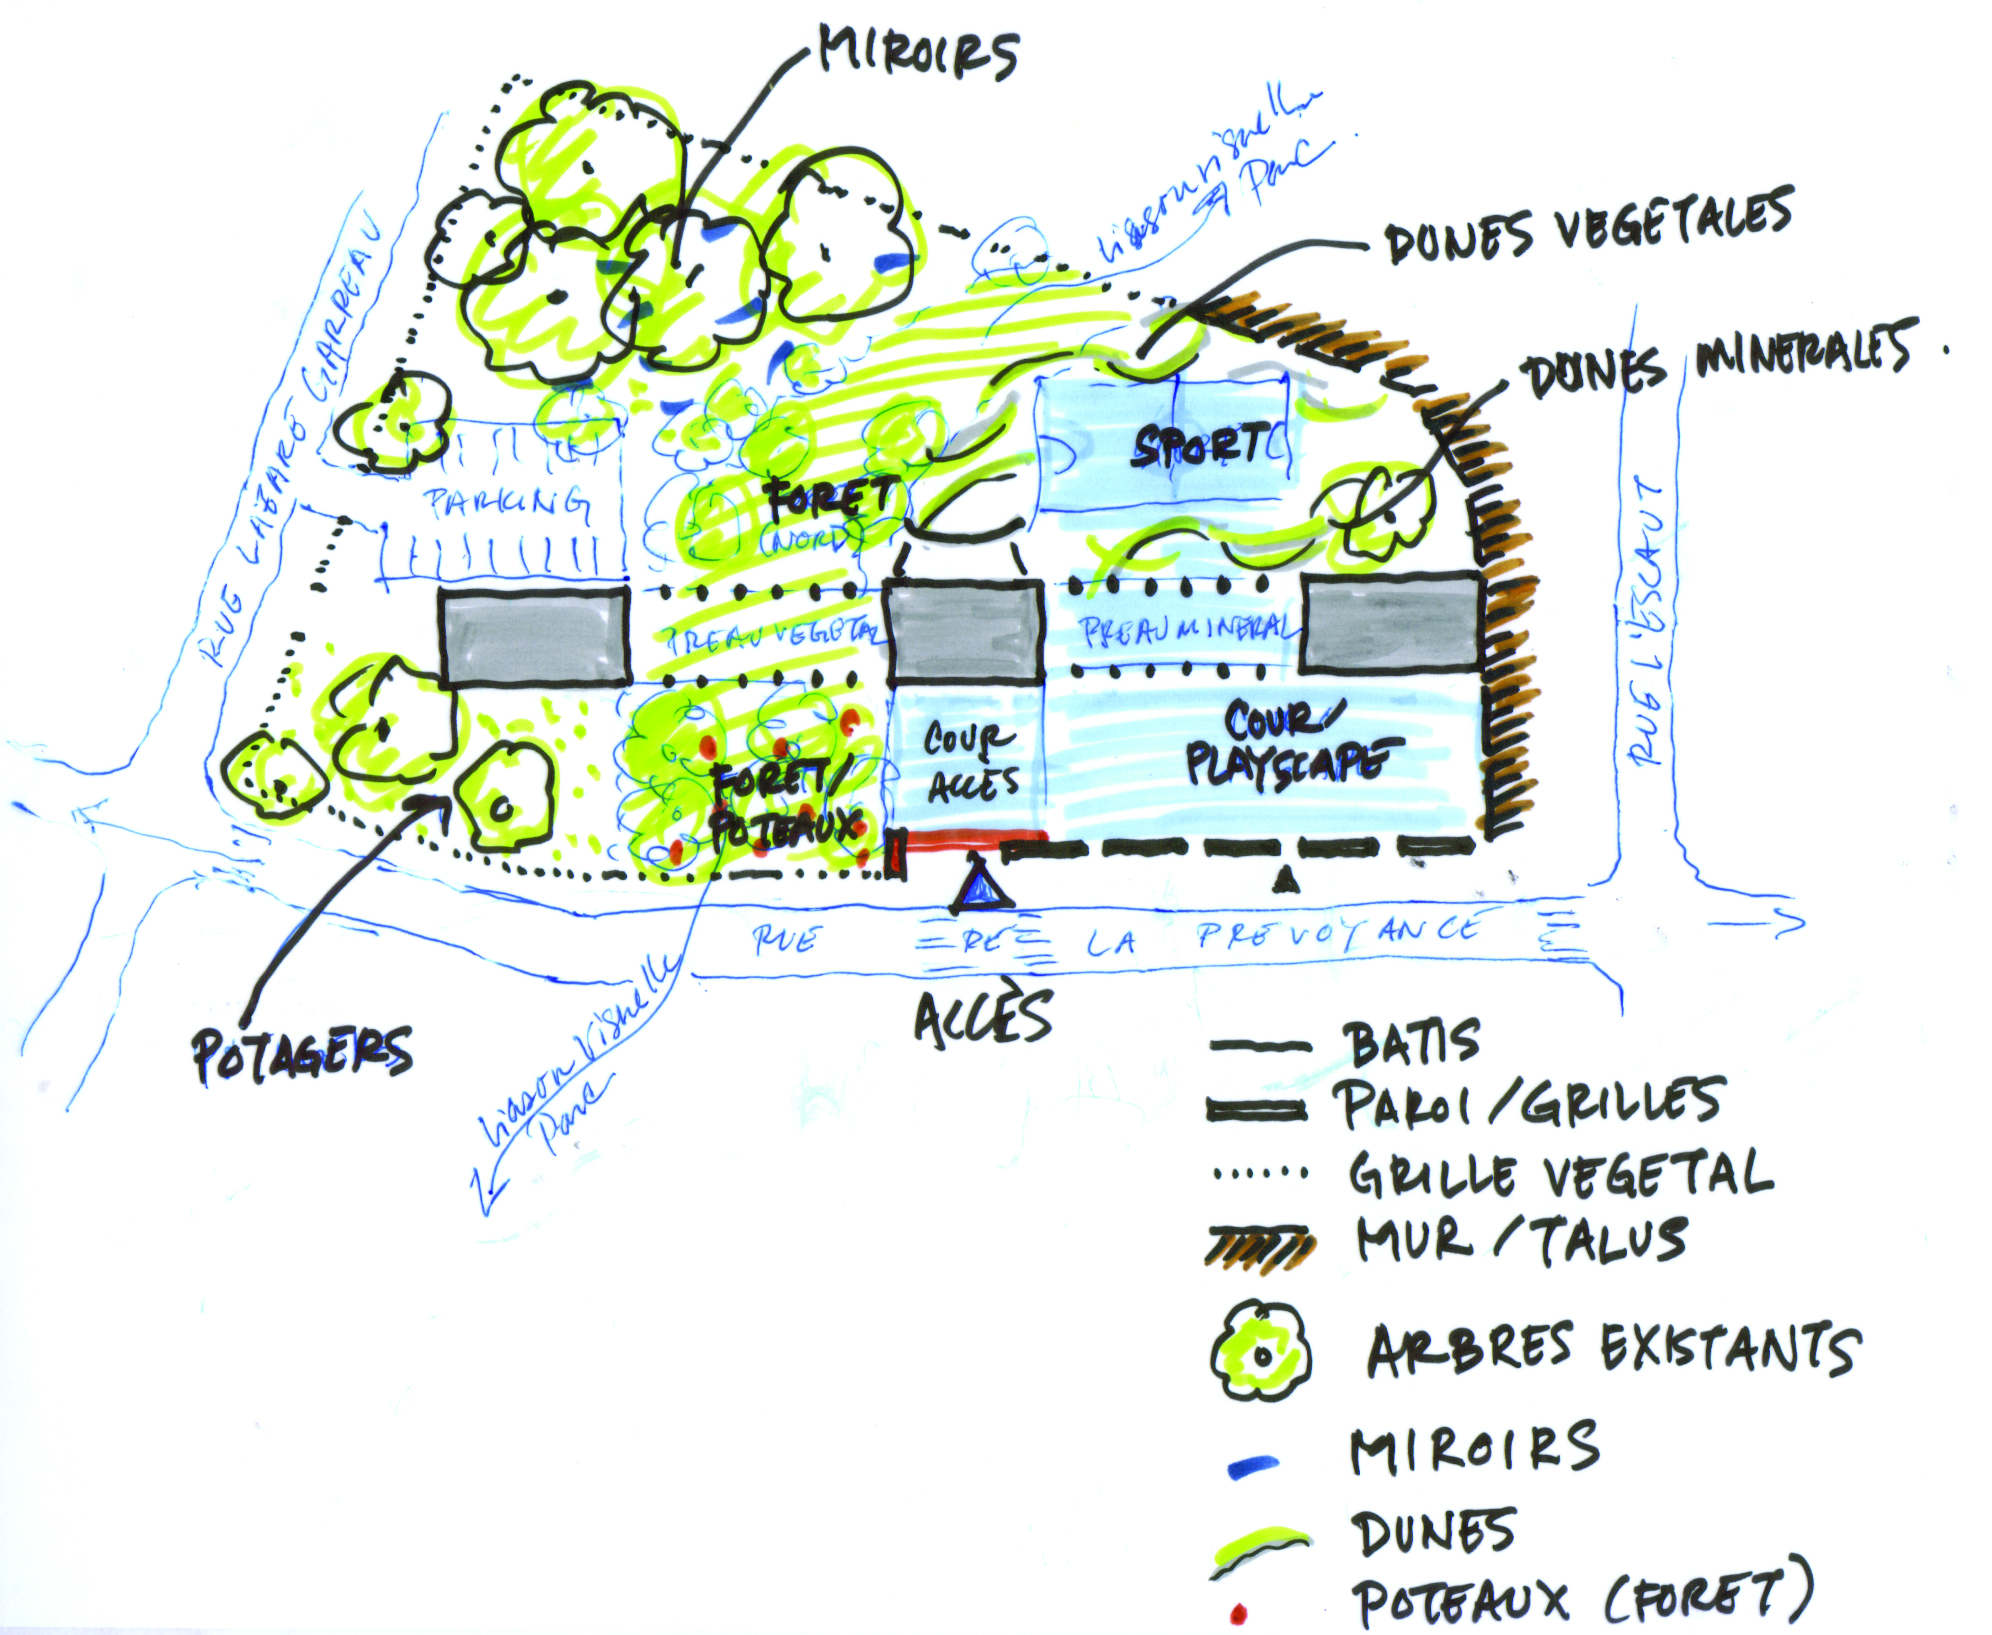 MIROIRS
Liaison visuelle
Parc
DUNES VEGETALES
DUNES MINERALES.
RUE LAZARE GARREAU
SPORT
PARKING
FORET
(NORD)
RUE L'ESCAUT
PREAU VEGETAL
PREAU MINERAL
COUR
ACCES
COUR/
PLAYSCAPE
FORET/
POTEAUX
RUE DE LA PREVOYANCE
Liason visuelle
Parc
ACCÈS
POTAGERS
BATIS
PAROI/GRILLES
GRILLE VEGETAL
MUR/TALUS
ARBRES EXISTANTS
MIROIRS
DUNES
POTEAUX (FORET)